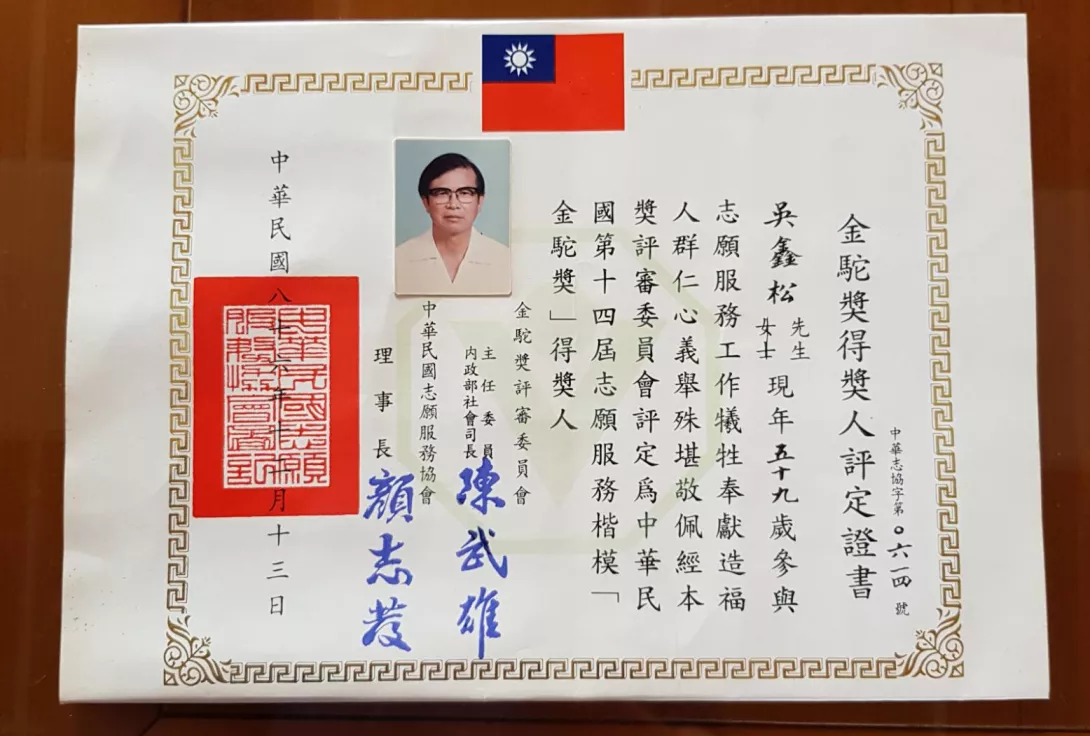 金駝獎得獎人評定證書
中華志協字第〇六一四號
吳鑫松先生女士現年五十九歲參與
志願服務工作犧牲奉獻造福
人群仁心義舉殊堪敬佩經本
獎評審委員會評定爲中華民
國第十四屆志願服務楷模「
金駝獎」得獎人
金駝獎評審委員會
主任委員
內政部社會司長
陳武雄
中華民國志願服務協會
理事長
顏志發
中華民國八十六年十二月十三日